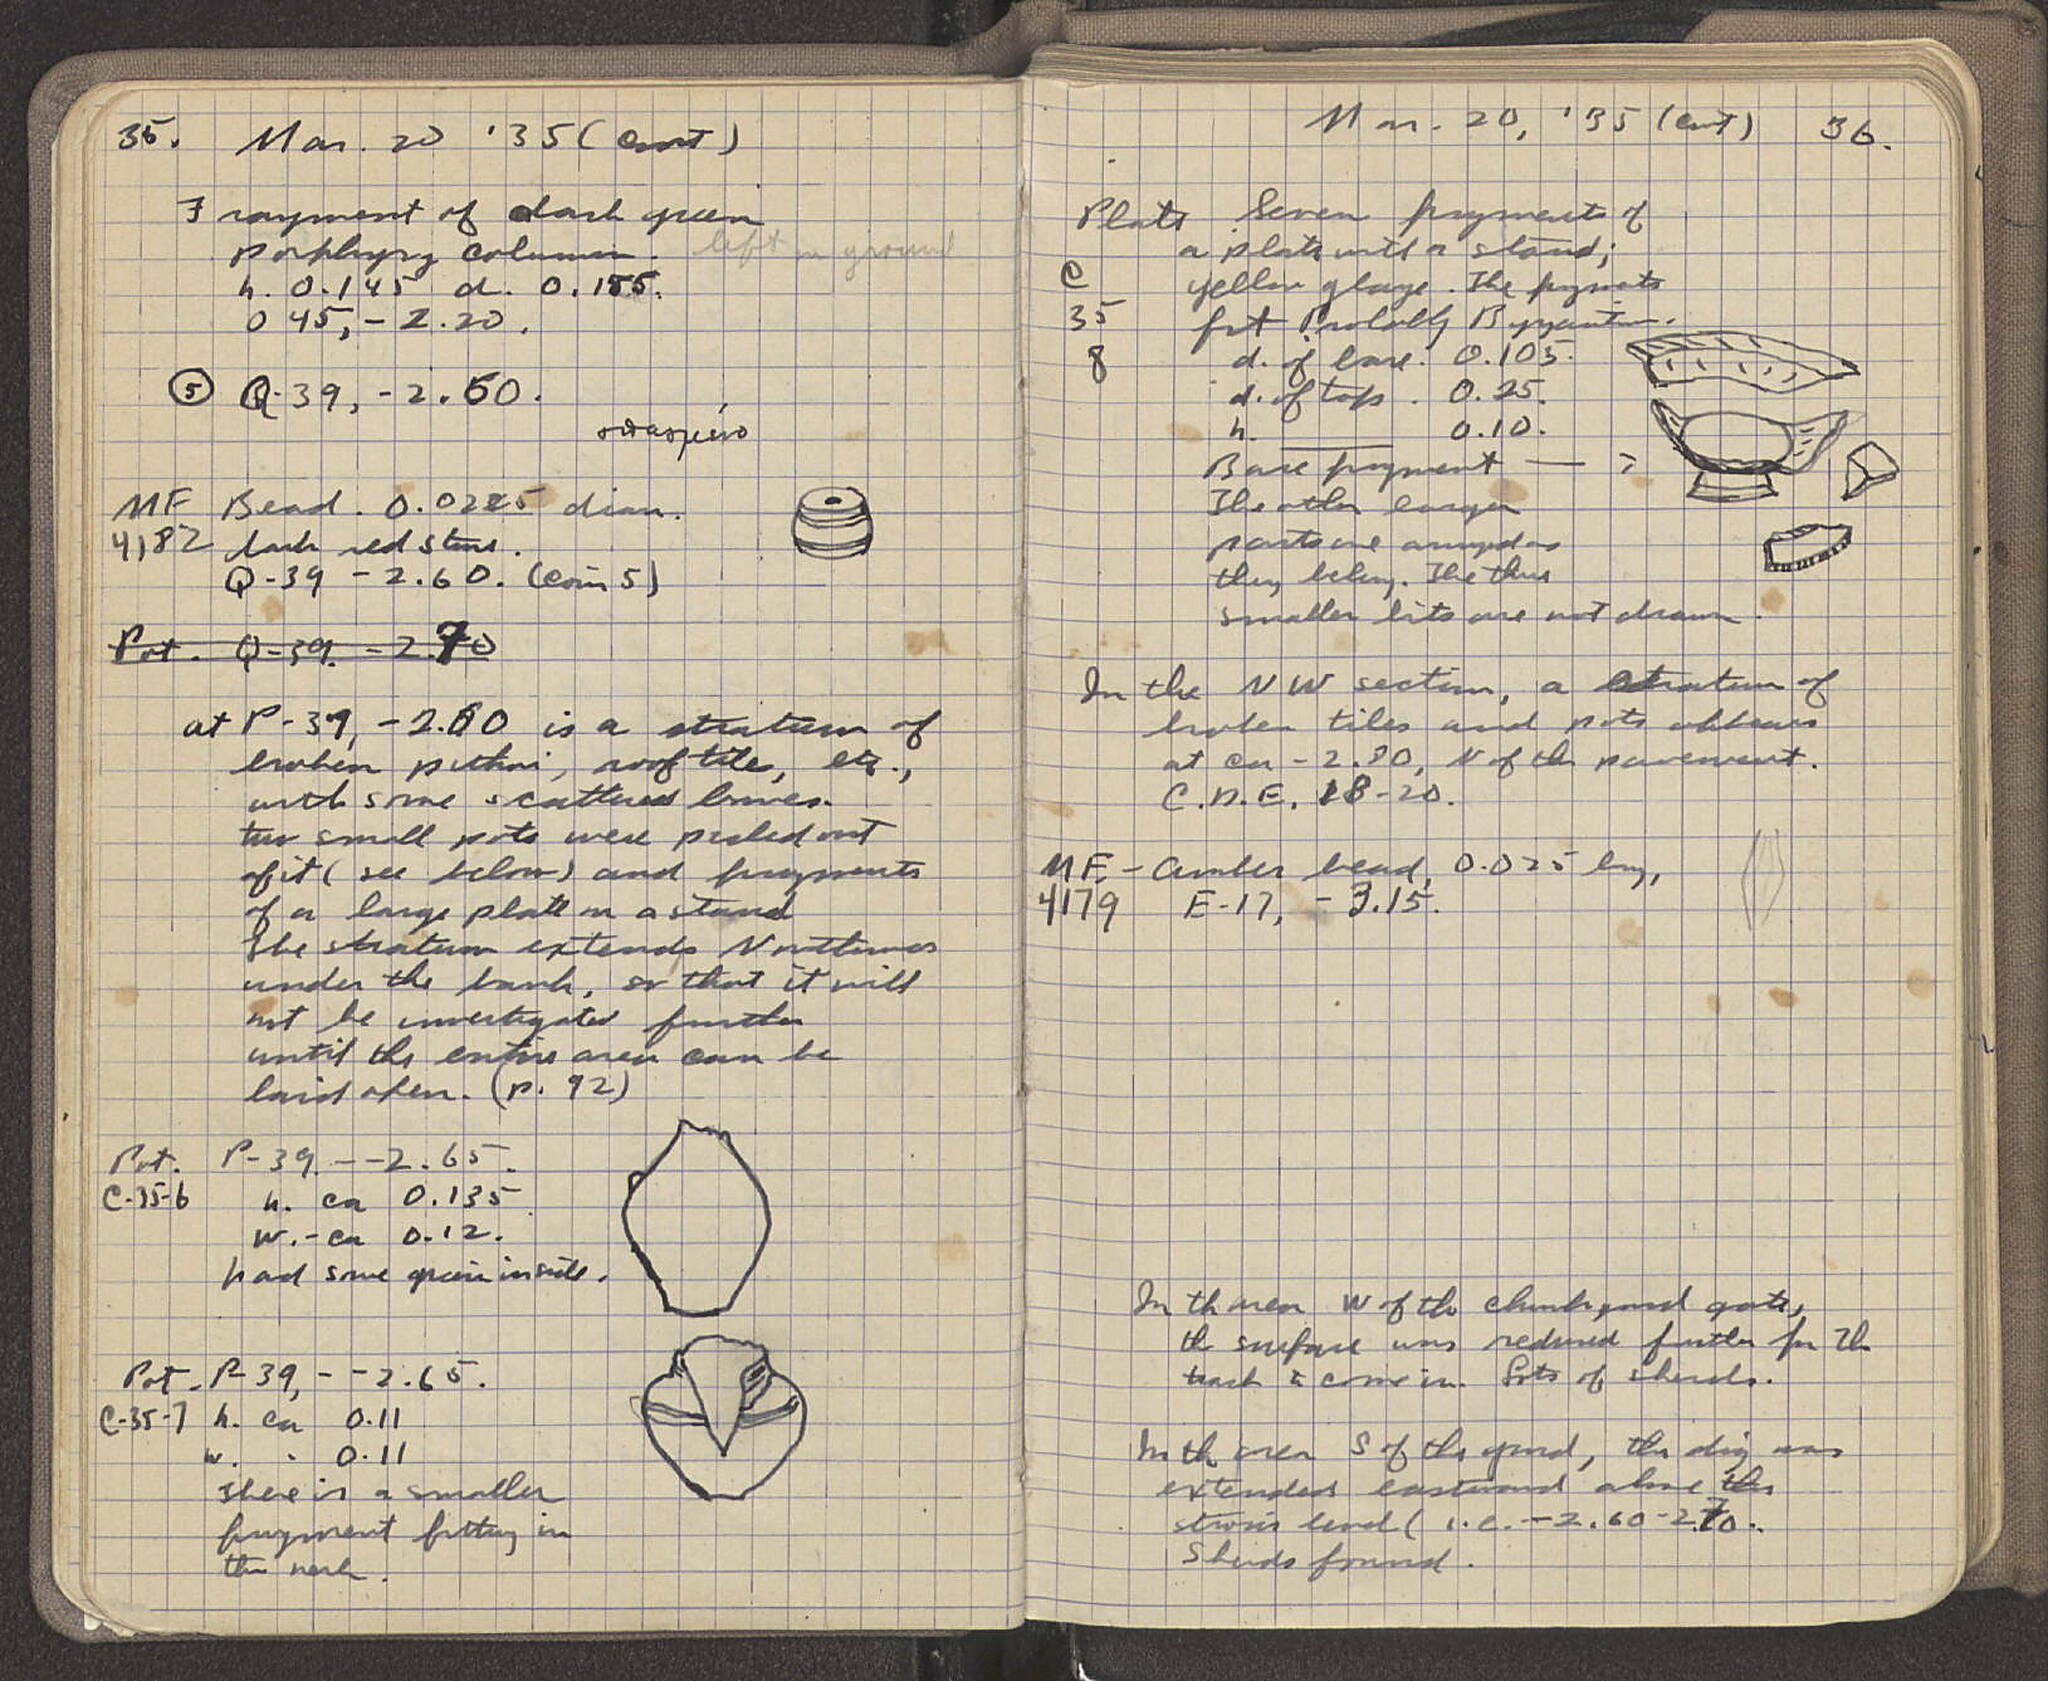 35. Mar. 20 '35 (cont)
Fragment of dark green
porphyry column. left in ground
h. 0.145 d. 0.155.
O 45, -2.20.
⑤ Q-39, -2.60.
MF Bead. 0.0225 diam.
4182 dark red stone.
Q-39 -2.60. (coin 5)
Pot. Q-39. -2.70
at P-39, -2.60 is a stratum of
broken pithoi, roof tile, etc.,
with some scattered bones.
two small pots were picked out
of it (see below) and fragments
of a large plate on a stand
The stratum extends Northwards
under the bank, so that it will
not be investigated further
until the entire area can be
laid open. (p. 92)
Pot. P-39. --2.65.
C-35-6 h. ca 0.135
w. -ca 0.12.
had some grain inside.
Pot. P-39, --2.65.
C-35-7 h. ca 0.11
w. . 0.11
There is a smaller
fragment fitting in
the neck.
Mar. 20, '35 (cont) 36.
Plate Seven fragments of
a plate with a stand;
C yellow glaze. The fragments
35 fit Probably Byzantine.
8 d. of base. 0.105.
d. of top. 0.25.
h. 0.10.
Base fragment — >
The other larger
parts are arranged as
they belong. The three
smaller bits are not drawn.
In the NW section, a stratum of
broken tiles and pots appears
at ca -2.80, N of the pavement.
C.D.E. 18-20.
MF - Amber bead, 0.025 long,
4179 E-17, -3.15.
In the area W of the churchyard gate,
the surface was reduced further for the
track to come in. Lots of sherds.
In the area S of the yard, the dig was
extended eastward above the
strosis level (i.e. -2.60-2.70.
Sherds found.